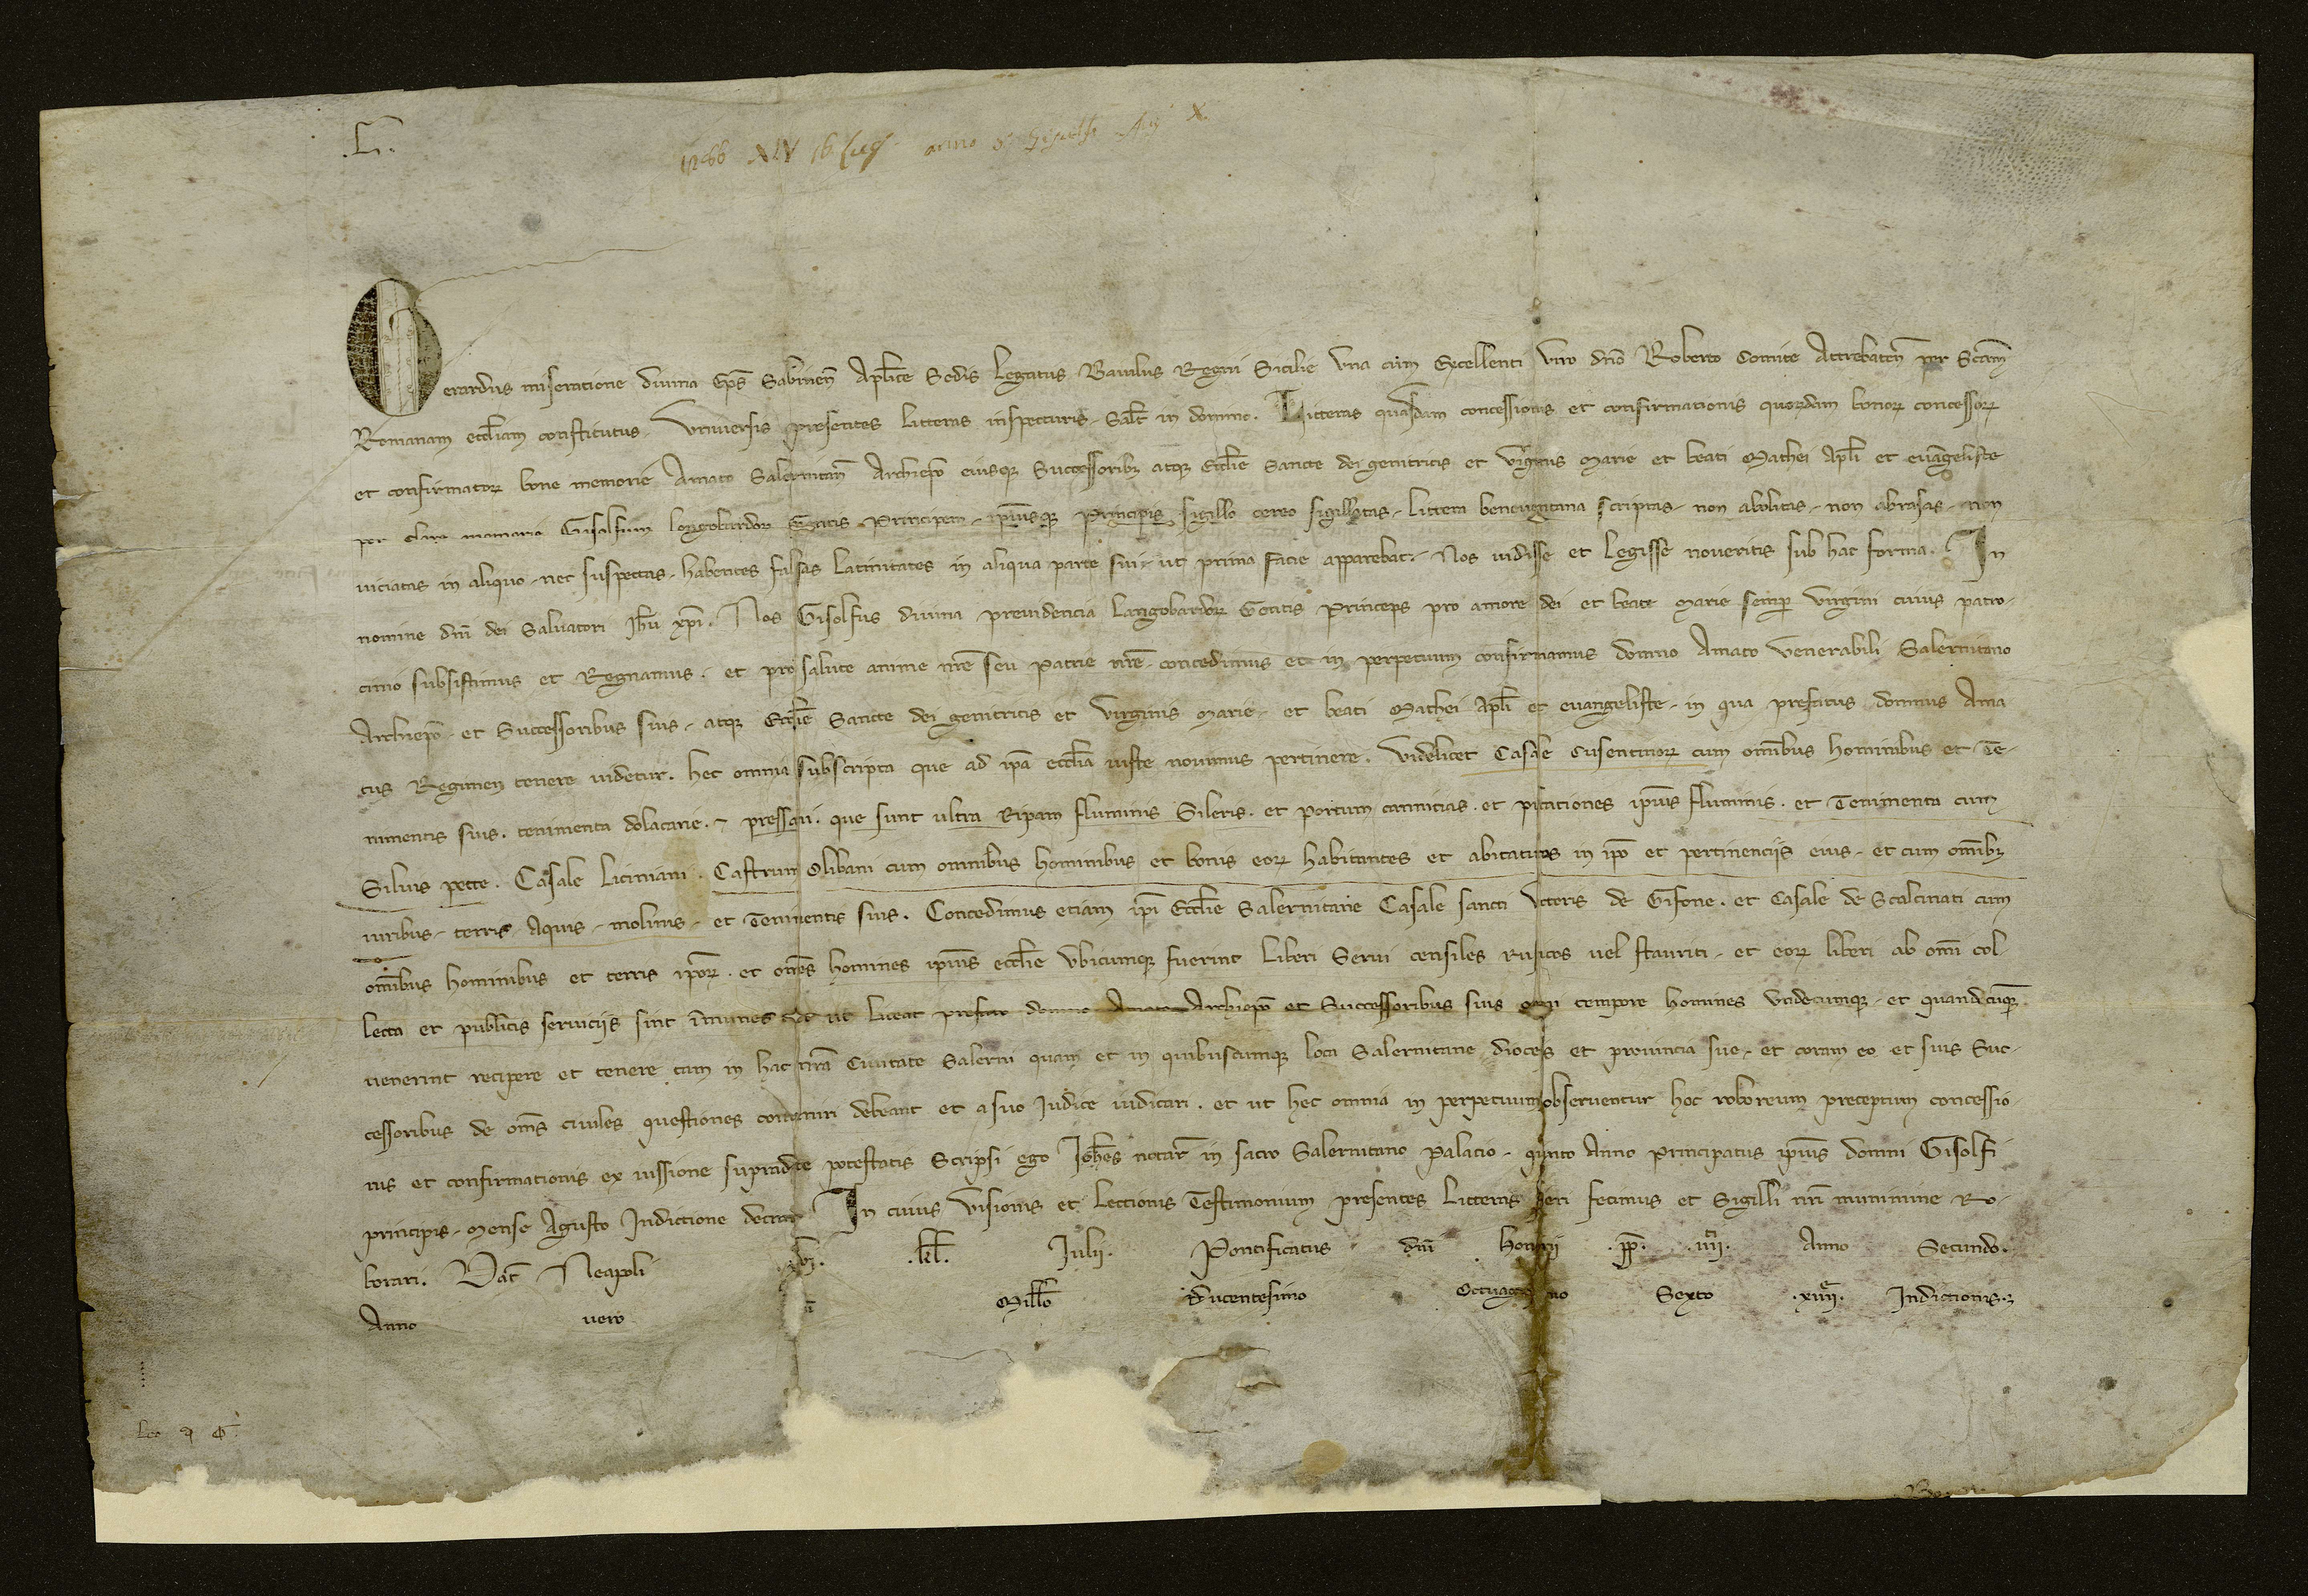 .L.
Gerardus miseratione diuina Ep̄s Sabinen̄ Aplīce Sedis Legatus Baiulus Regni Sicilie Vna cum Excellenti Viro dn̄o Roberto Comite Attrebaten̄ per Sc̄am
Romanam eccl̄iam constitutus. Vniuersis presentes litteras inspecturis. Sal̄t in domino. Litteras quasdam concessionis et confirmationis quorūdam bonorꝝ concessorꝝ
et confirmatorꝝ bone memorie Amato Salernitan̄ Archiep̄o eiusqꝫ Successoribꝫ atqꝫ Eccl̄ie Sancte dei genitricis et Virginis Marie et beati Mathei Apl̄i et euāgeliste
per clare memorie Gisolfum Longobardorꝝ Gentis Principem. ipsiusqꝫ Principis sigillo cereo sigillatas. Littera beneuentana scriptas. non abolitas. non abrasas. non
uiciatas in aliquo. nec suspectas. habentes falsas Latinitates in aliqua parte sui. ut prima facie apparebat. Nos uidisse et legisse noueritis sub hac forma. In
nomine dn̄i dei Saluatori Ih̄u xp̄i. Nos Gisolfus diuina prouidencia Langobardorꝝ Gentis Princeps pro amore dei et beate Marie semp̱ Virgini cuius patro-
cinio subsistimus et Regnamus. et pro salute anime nr̄e seu patrie nr̄e. concedimus et in perpetuum confirmamus domno Amato Venerabili Salernitano
Archiep̄o. et Successoribus suis. atqꝫ Eccl̄ie Sancte dei genitricis et Virginis Marie. et beati Mathei Apl̄i et euangeliste. in qua prefatus domnus Ama
tus Regimen tenere uidetur. hec omnia subscripta que ad ip̄a eccl̄ia iuste nouimus pertinere. Videlicet Casale Cusentinorꝝ cum omībus hominibus et Te-
nimentis suis. tenimenta dolacarie. et pressani. que sunt ultra Ripam fluminis Sileris. et portum cannicias. et piscationes ip̄ius fluminis. et Tenimenta cum
Siluis pette. Casale Liciniani. Castrum Olibani cum omnibus hominibus et bonis eorꝝ habitantes et abitaturos in ip̄o et pertinenciis eius. et cum omībꝫ
iuribus. terris. Aquis. molinis. et Tenimentis suis. Concedimus etiam ip̄i Eccl̄ie Salernitane Casale sancti Vcteris de Gifone. et Casale de Scalcinati cum
omībus hominibus et terris ip̄orꝝ. et om̄s homines ip̄ius eccl̄ie Vbicumqꝫ fuerint Liberi Serui censiles rusticos uel stauriti. et eorꝝ liberi ab om̄i col-
lecta et publicis seruiciis sint īmunes et ut liceat prefato domno Amato Archiep̄o et Successoribus suis om̄i tempore homines Vndecumqꝫ. et quandocūqꝫ
uenerint recipere et tenere tam in hac nr̄a Ciuitate Salerni quam et in quibuscumqꝫ loca Salernitane diocesis et prouincia sue. et coram eo et suis Suc-
cessoribus de om̄s ciuiles questiones conueniri debeant et a suo Iudice iudicari. et ut hec omnia in perpetuum obseruentur hoc roboreum preceptum concessio-
nis et confirmationis ex iussione supradicte potestatis Scripsi ego Ioh̄es notar̄ in sacro Salernitano Palacio. quinto Anno Principatus ip̄ius domni Gisolfi
principis. Mense Agusto Indictione decima In cuius Visionis et Lectionis Testimonium presentes Litteras fieri fecimus et Sigilli nr̄i munimine Ro-
borari. Dat̄ Neapoli .kl̄. Iulii. Pontificatus dn̄i Honorii .pp̄. .iiij. Anno Secundo.
Anno uero Mill̄o Ducentesimo Octuagesimo Sexto .xiiij. Indictionis.